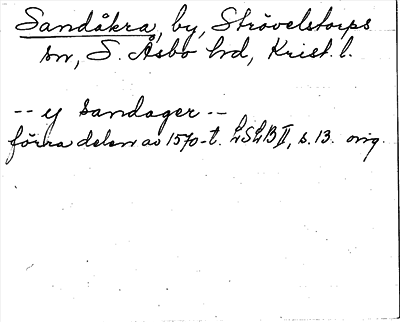 Sandåkra, by, Strövelstorps
sn, S. Åsbo hd, Krist. l.
-- y Sandager --
förra delen av 1570-t. LSLB II, s. 13. orig.